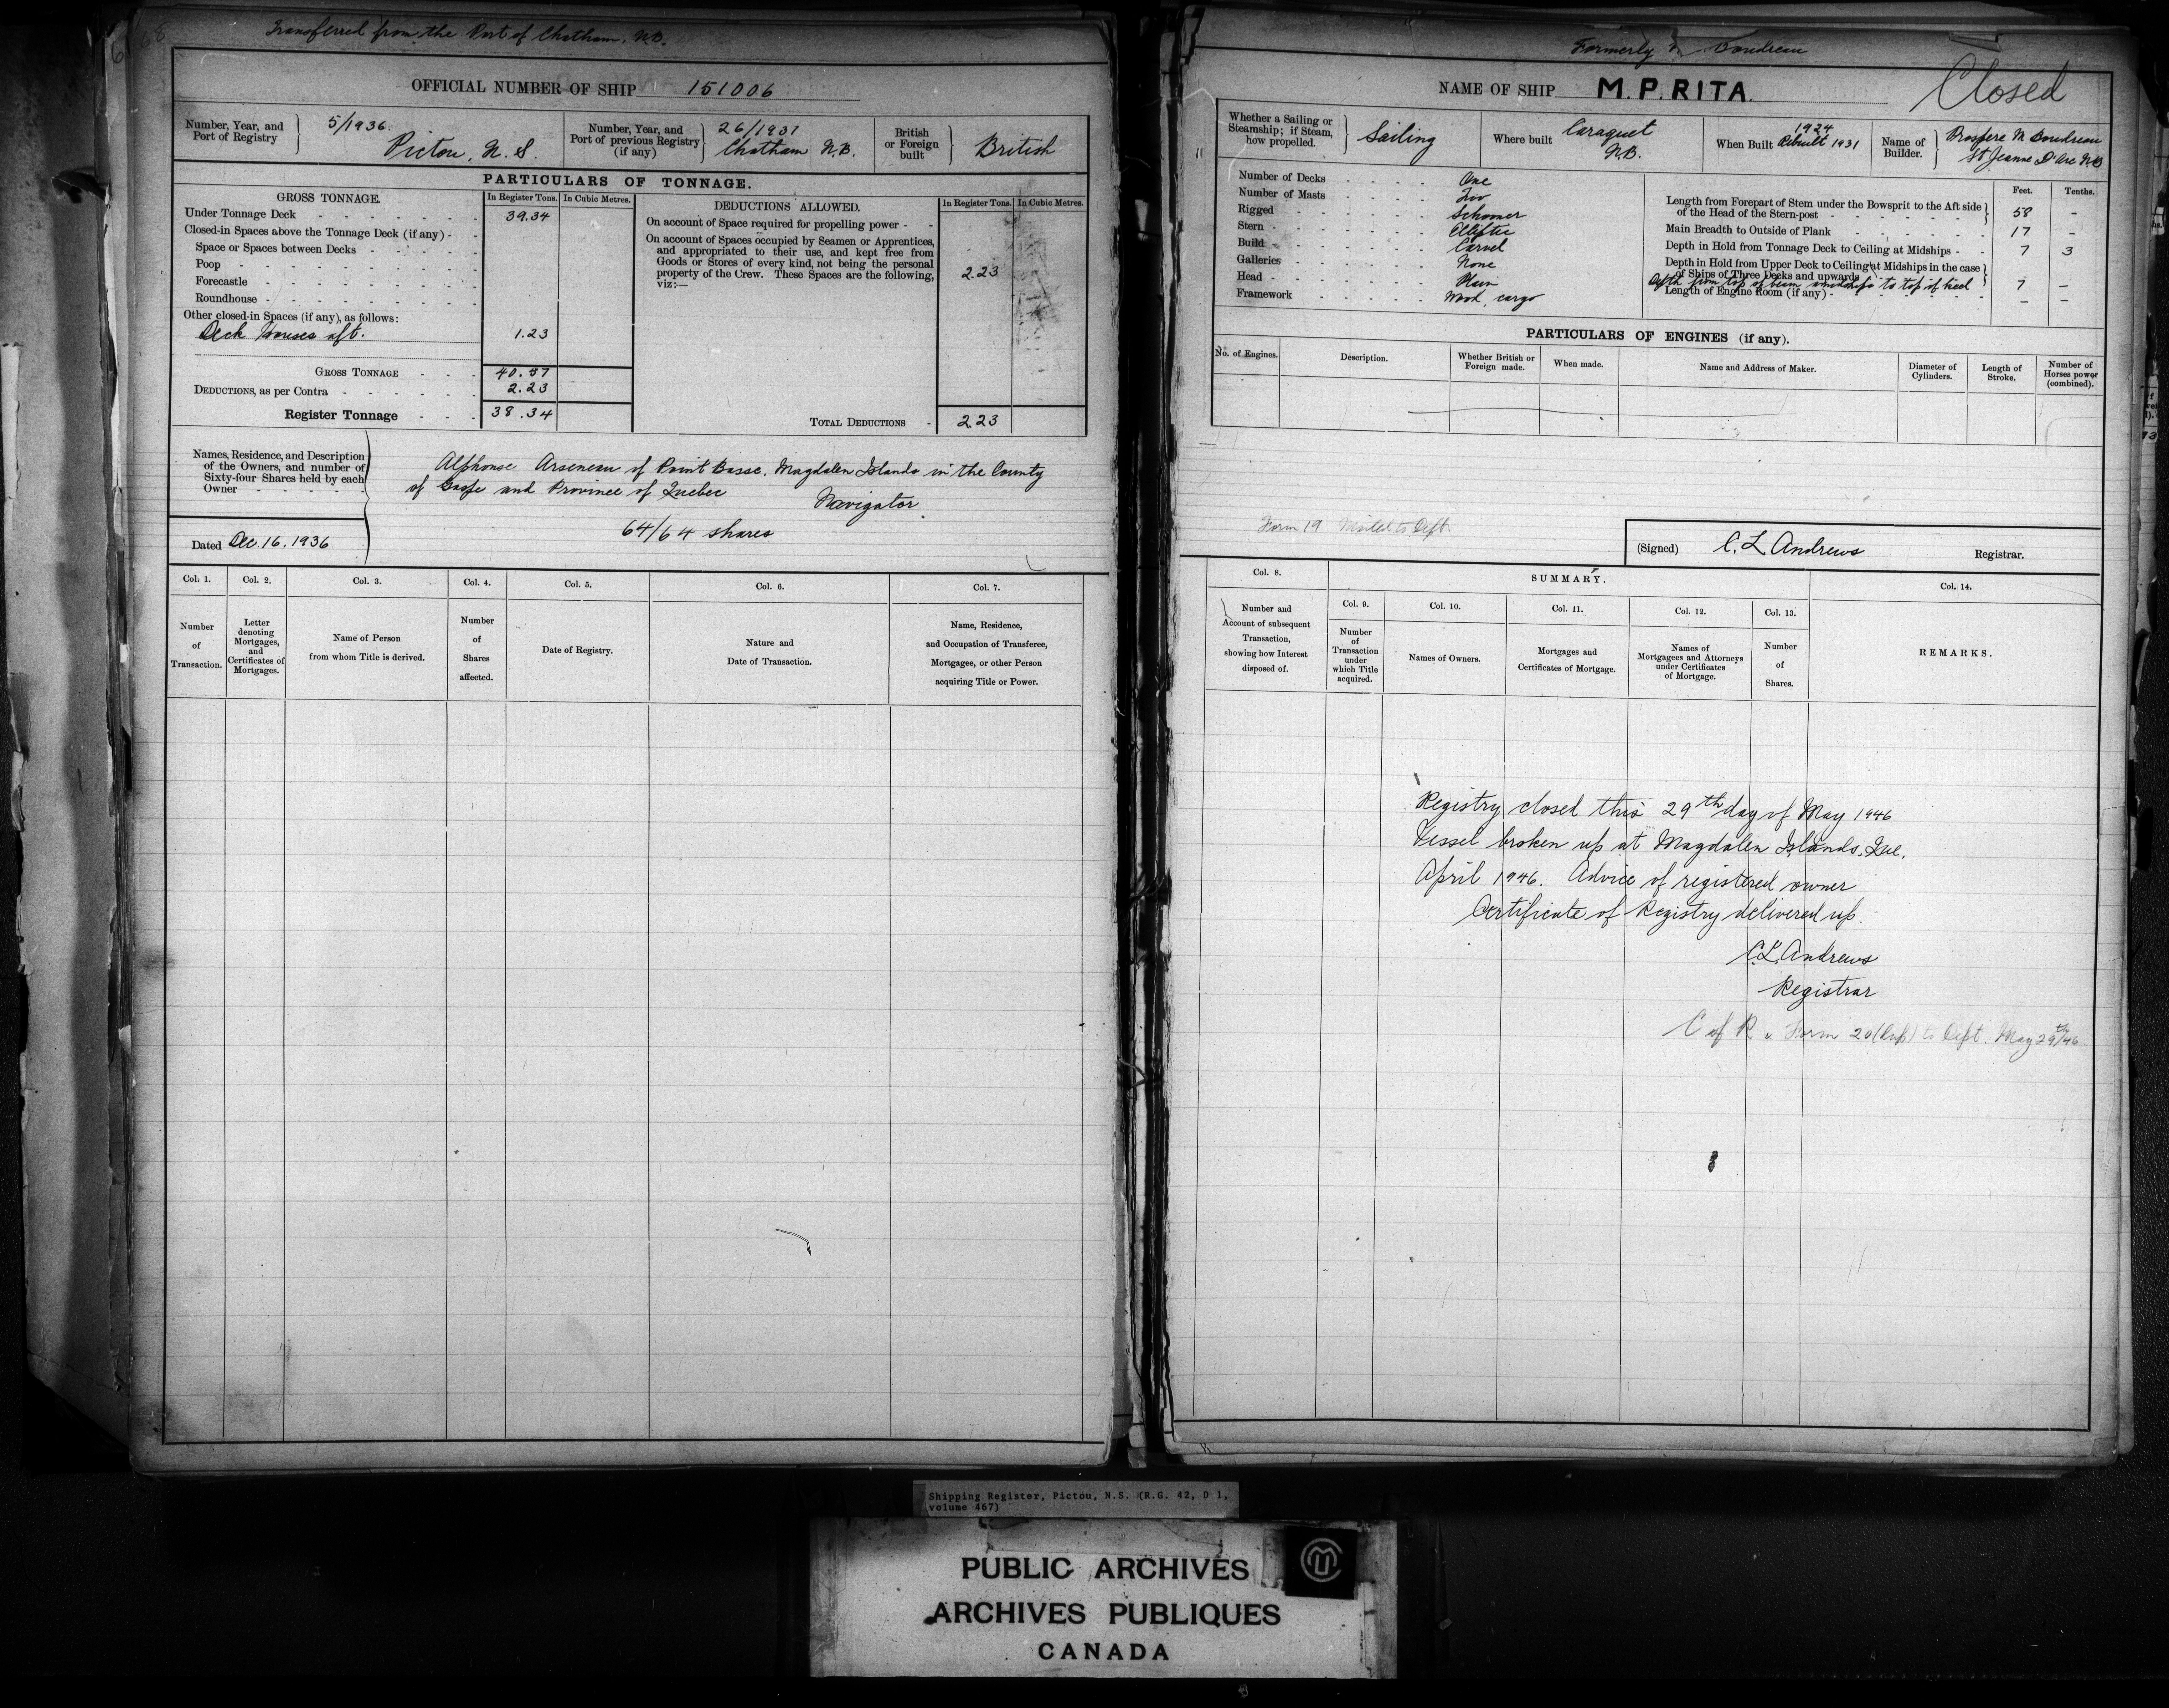 68
Transferred from the Port of Chatham, N.B.
OFFICIAL NUMBER OF SHIP 151006
Number, Year, and Port of Registry
5/1936.
Pictou, N.S.
Number, Year, and Port of previous Registry (if any)
26/1931
Chatham N.B.
British or Foreign built
British
PARTICULARS OF TONNAGE.
GROSS TONNAGE.
In Register Tons.
In Cubic Metres.
Under Tonnage Deck 39.34
Closed-in Spaces above the Tonnage Deck (if any)
Space or Spaces between Decks
Poop
Forecastle
Roundhouse
Other closed-in Spaces (if any), as follows:
Deck Houses aft. 1.23
GROSS TONNAGE 40.57
DEDUCTIONS, as per Contra 2.23
Register Tonnage 38.34
DEDUCTIONS ALLOWED.
In Register Tons.
In Cubic Metres.
On account of Space required for propelling power
On account of Spaces occupied by Seamen or Apprentices,
and appropriated to their use, and kept free from
Goods or Stores of every kind, not being the personal
property of the Crew. These Spaces are the following,
viz:—
2.23
TOTAL DEDUCTIONS 2.23
Names, Residence, and Description
of the Owners, and number of
Sixty-four Shares held by each
Owner
Alphonse Arseneau of Point Basse, Magdalen Islands in the County
of Gaspe and Province of Quebec
Navigator
64/64 shares
Dated Dec. 16, 1936
Col. 1.
Number of Transaction.
Col. 2.
Letter denoting Mortgages, and Certificates of Mortgages.
Col. 3.
Name of Person from whom Title is derived.
Col. 4.
Number of Shares affected.
Col. 5.
Date of Registry.
Col. 6.
Nature and Date of Transaction.
Col. 7.
Name, Residence, and Occupation of Transferee, Mortgagee, or other Person acquiring Title or Power.
Formerly Boudreau
NAME OF SHIP M.P. RITA.
Closed
Whether a Sailing or Steamship; if Steam, how propelled.
Sailing
Where built
Caraquet
N.B.
When Built
1924
Rebuilt 1931
Name of Builder.
Prospere M Boudreau
St Jeanne D'Arc N.B
Number of Decks One
Number of Masts Two
Rigged Schooner
Stern Elliptic
Build Carvel
Galleries None
Head Plain
Framework Wood, cargo
Feet.
Tenths.
Length from Forepart of Stem under the Bowsprit to the Aft side
of the Head of the Stern-post 58 -
Main Breadth to Outside of Plank 17 -
Depth in Hold from Tonnage Deck to Ceiling at Midships 7 3
Depth in Hold from Upper Deck to Ceiling at Midships in the case
of Ships of Three Decks and upwards
Depth from top of beam amidships to top of keel 7 -
Length of Engine Room (if any) - -
PARTICULARS OF ENGINES (if any).
No. of Engines.
Description.
Whether British or Foreign made.
When made.
Name and Address of Maker.
Diameter of Cylinders.
Length of Stroke.
Number of Horses power (combined).
Form 19 Mailed to Dept.
(Signed) C. L. Andrews Registrar.
Col. 8.
Number and Account of subsequent Transaction, showing how Interest disposed of.
SUMMARY.
Col. 9.
Number of Transaction under which Title acquired.
Col. 10.
Names of Owners.
Col. 11.
Mortgages and Certificates of Mortgage.
Col. 12.
Names of Mortgagees and Attorneys under Certificates of Mortgage.
Col. 13.
Number of Shares.
Col. 14.
REMARKS.
Registry closed this 29th day of May 1946
Vessel broken up at Magdalen Islands, Que,
April 1946. Advice of registered owner
Certificate of Registry delivered up.
C.L. Andrews
Registrar
C of R & Form 20 (Dup) to Dept. May 29th/46
Shipping Register, Pictou, N.S. (R.G. 42, D 1,
volume 467)
PUBLIC ARCHIVES
ARCHIVES PUBLIQUES
CANADA